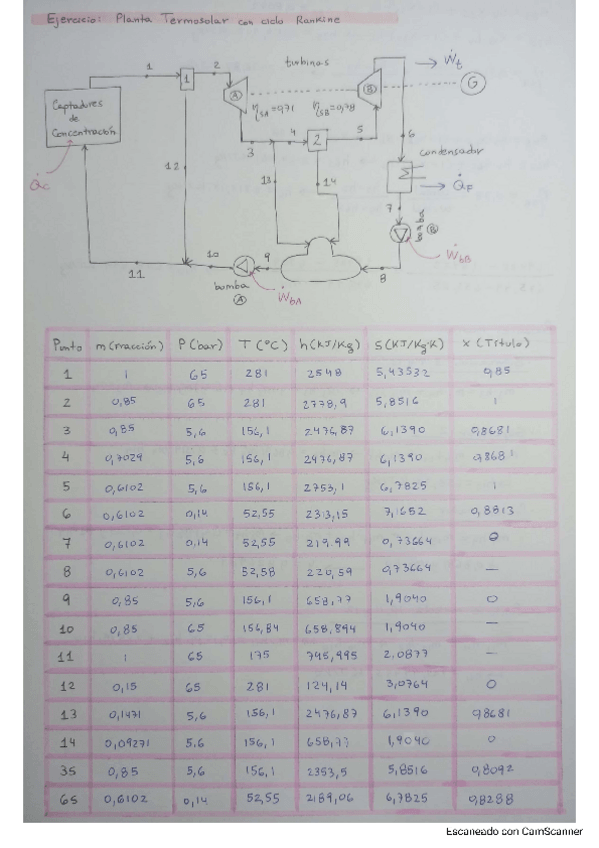 Ejercicio: Planta Termosolar con ciclo Rankine
1
2
turbinas
Ẇt
1
A
B
G
Captadores
de
Concentración
ηSA=0,71
ηSB=0,78
3
4
2
5
6
condensador
Q̇c
12
13
14
Q̇F
7
bomba B
ẆbB
11
10
9
8
bomba
A
ẆbA
Punto m(fracción) P(bar) T(°C) h(KJ/Kg) S(KJ/Kg·K) x(Título)
1 1 65 281 2548 5,43532 0,85
2 0,85 65 281 2778,9 5,8516 1
3 0,85 5,6 156,1 2476,87 6,1390 0,8681
4 0,7029 5,6 156,1 2476,87 6,1390 0,8681
5 0,6102 5,6 156,1 2753,1 6,7825 1
6 0,6102 0,14 52,55 2313,15 7,1652 0,8813
7 0,6102 0,14 52,55 219,99 0,73664 0
8 0,6102 5,6 52,58 220,59 0,73664 —
9 0,85 5,6 156,1 658,77 1,9040 0
10 0,85 65 156,84 658,894 1,9040 —
11 1 65 175 745,495 2,0877 —
12 0,15 65 281 124,14 3,0764 0
13 0,1471 5,6 156,1 2476,87 6,1390 0,8681
14 0,09271 5.6 156,1 658,77 1,9040 0
3S 0,85 5,6 156,1 2353,5 5,8516 0,8092
6S 0,6102 0,14 52,55 2189,06 6,7825 0,8288
Escaneado con CamScanner